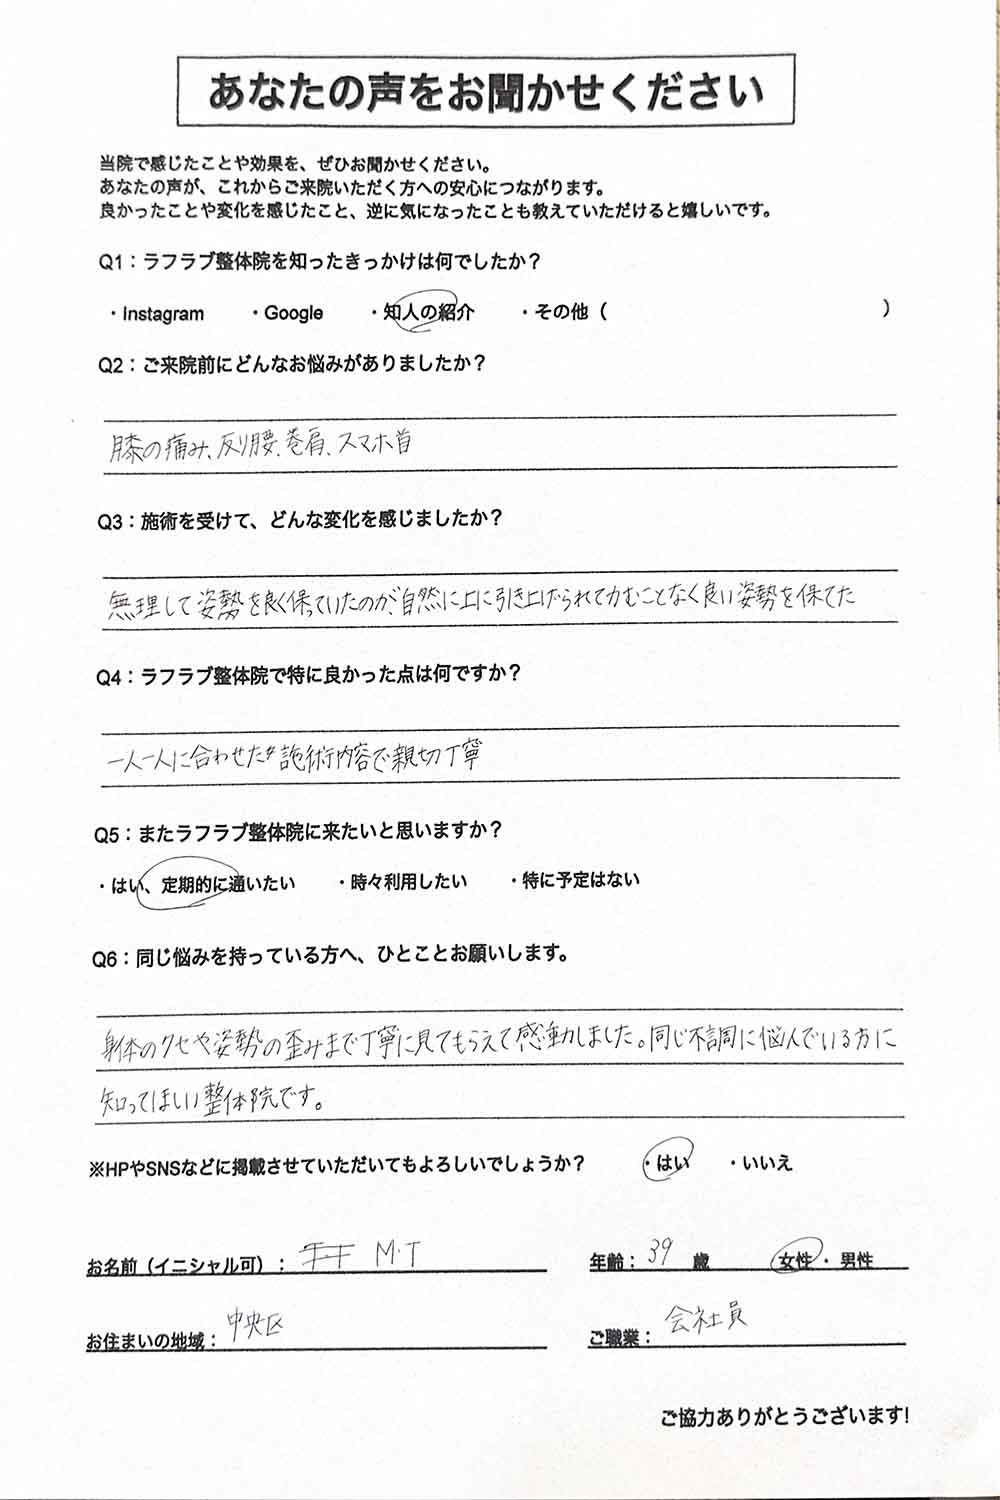 あなたの声をお聞かせください
当院で感じたことや効果を、ぜひお聞かせください。
あなたの声が、これからご来院いただく方への安心につながります。
良かったことや変化を感じたこと、逆に気になったことも教えていただけると嬉しいです。
Q1：ラフラブ整体院を知ったきっかけは何でしたか？
・Instagram ・Google ・知人の紹介 ・その他（ ）
Q2：ご来院前にどんなお悩みがありましたか？
膝の痛み、反り腰、巻肩、スマホ首
Q3：施術を受けて、どんな変化を感じましたか？
無理して姿勢を良く保っていたのが、自然に上に引き上げられて力むことなく良い姿勢を保てた
Q4：ラフラブ整体院で特に良かった点は何ですか？
一人一人に合わせた施術内容で親切丁寧
Q5：またラフラブ整体院に来たいと思いますか？
・はい、定期的に通いたい ・時々利用したい ・特に予定はない
Q6：同じ悩みを持っている方へ、ひとことお願いします。
身体のクセや姿勢の歪みまで丁寧に見てもらえて感動しました。同じ不調に悩んでいる方に
知ってほしい整体院です。
※HPやSNSなどに掲載させていただいてもよろしいでしょうか？ ・はい ・いいえ
お名前（イニシャル可）： M・T 年齢： 39 歳 女性・男性
お住まいの地域： 中央区 ご職業： 会社員
ご協力ありがとうございます!